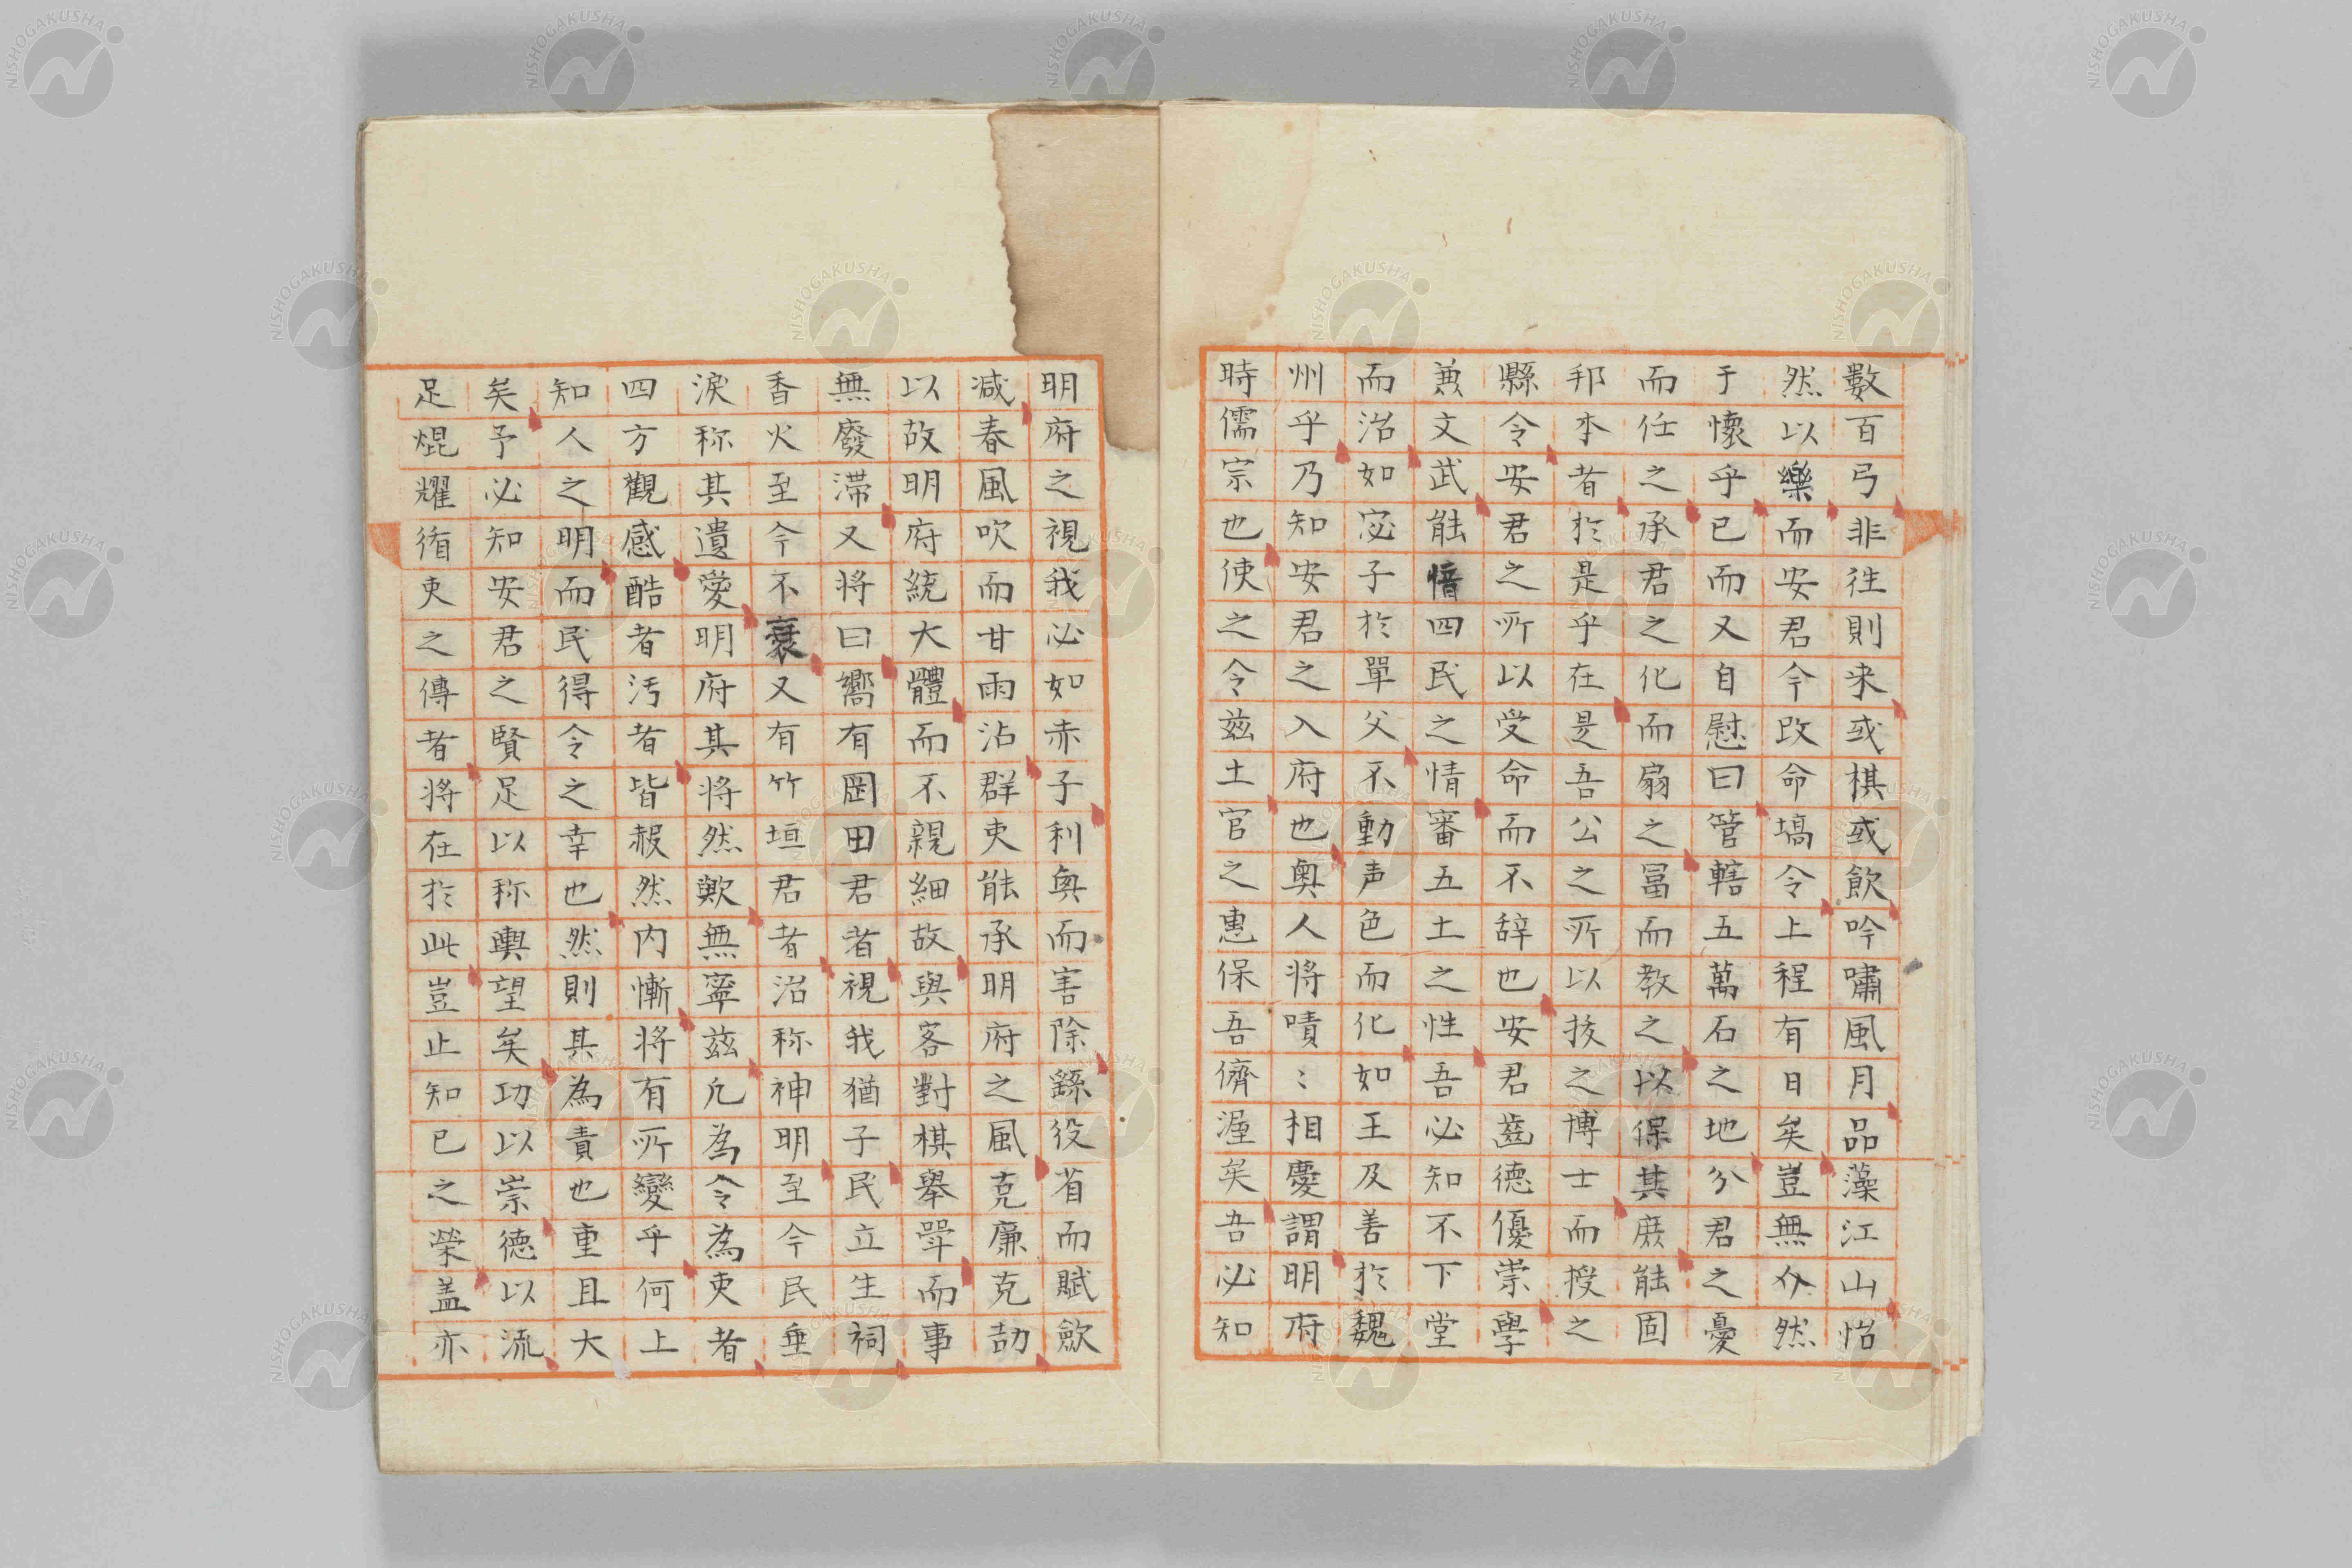 數百弓非往則来或棋或飲吟嘯風月品藻江山怡
然以樂而安君今改命塙令上程有日矣豈無介然
于懷乎已而又自慰曰管轄五萬石之地分君之憂
而任之承君之化而扇之冨而教之以保其庶能固
邦本者於是乎在是吾公之所以抜之博士而授之
縣令安君之所以受命而不辞也安君齒徳優崇學
兼文武能愔四民之情審五土之性吾必知不下堂
而治如宓子於單父不動声色而化如王及善於魏
州乎乃知安君之入府也輿人将嘖〻相慶謂明府
時儒宗也使之令茲土官之惠保吾儕渥矣吾必知
明府之視我必如赤子利與而害除繇役省而賦歛
减春風吹而甘雨沾群吏能承明府之風克廉克劼
以故明府統大體而不親細故與客對棋舉斝而事
無廢滞又将曰嚮有岡田君者視我猶子民立生祠
香火至今不衰又有竹垣君者沼称神明至今民垂
淚称其遺愛明府其将然歟無寧茲凢為令為吏者
四方觀感酷者汚者皆赧然内慚将有所變乎何上
知人之明而民得令之幸也然則其為責也重且大
矣予必知安君之賢足以称輿望矣功以崇徳以流
足焜耀循吏之傳者将在於此豈止知已之榮盖亦
NISHOGAKUSHA